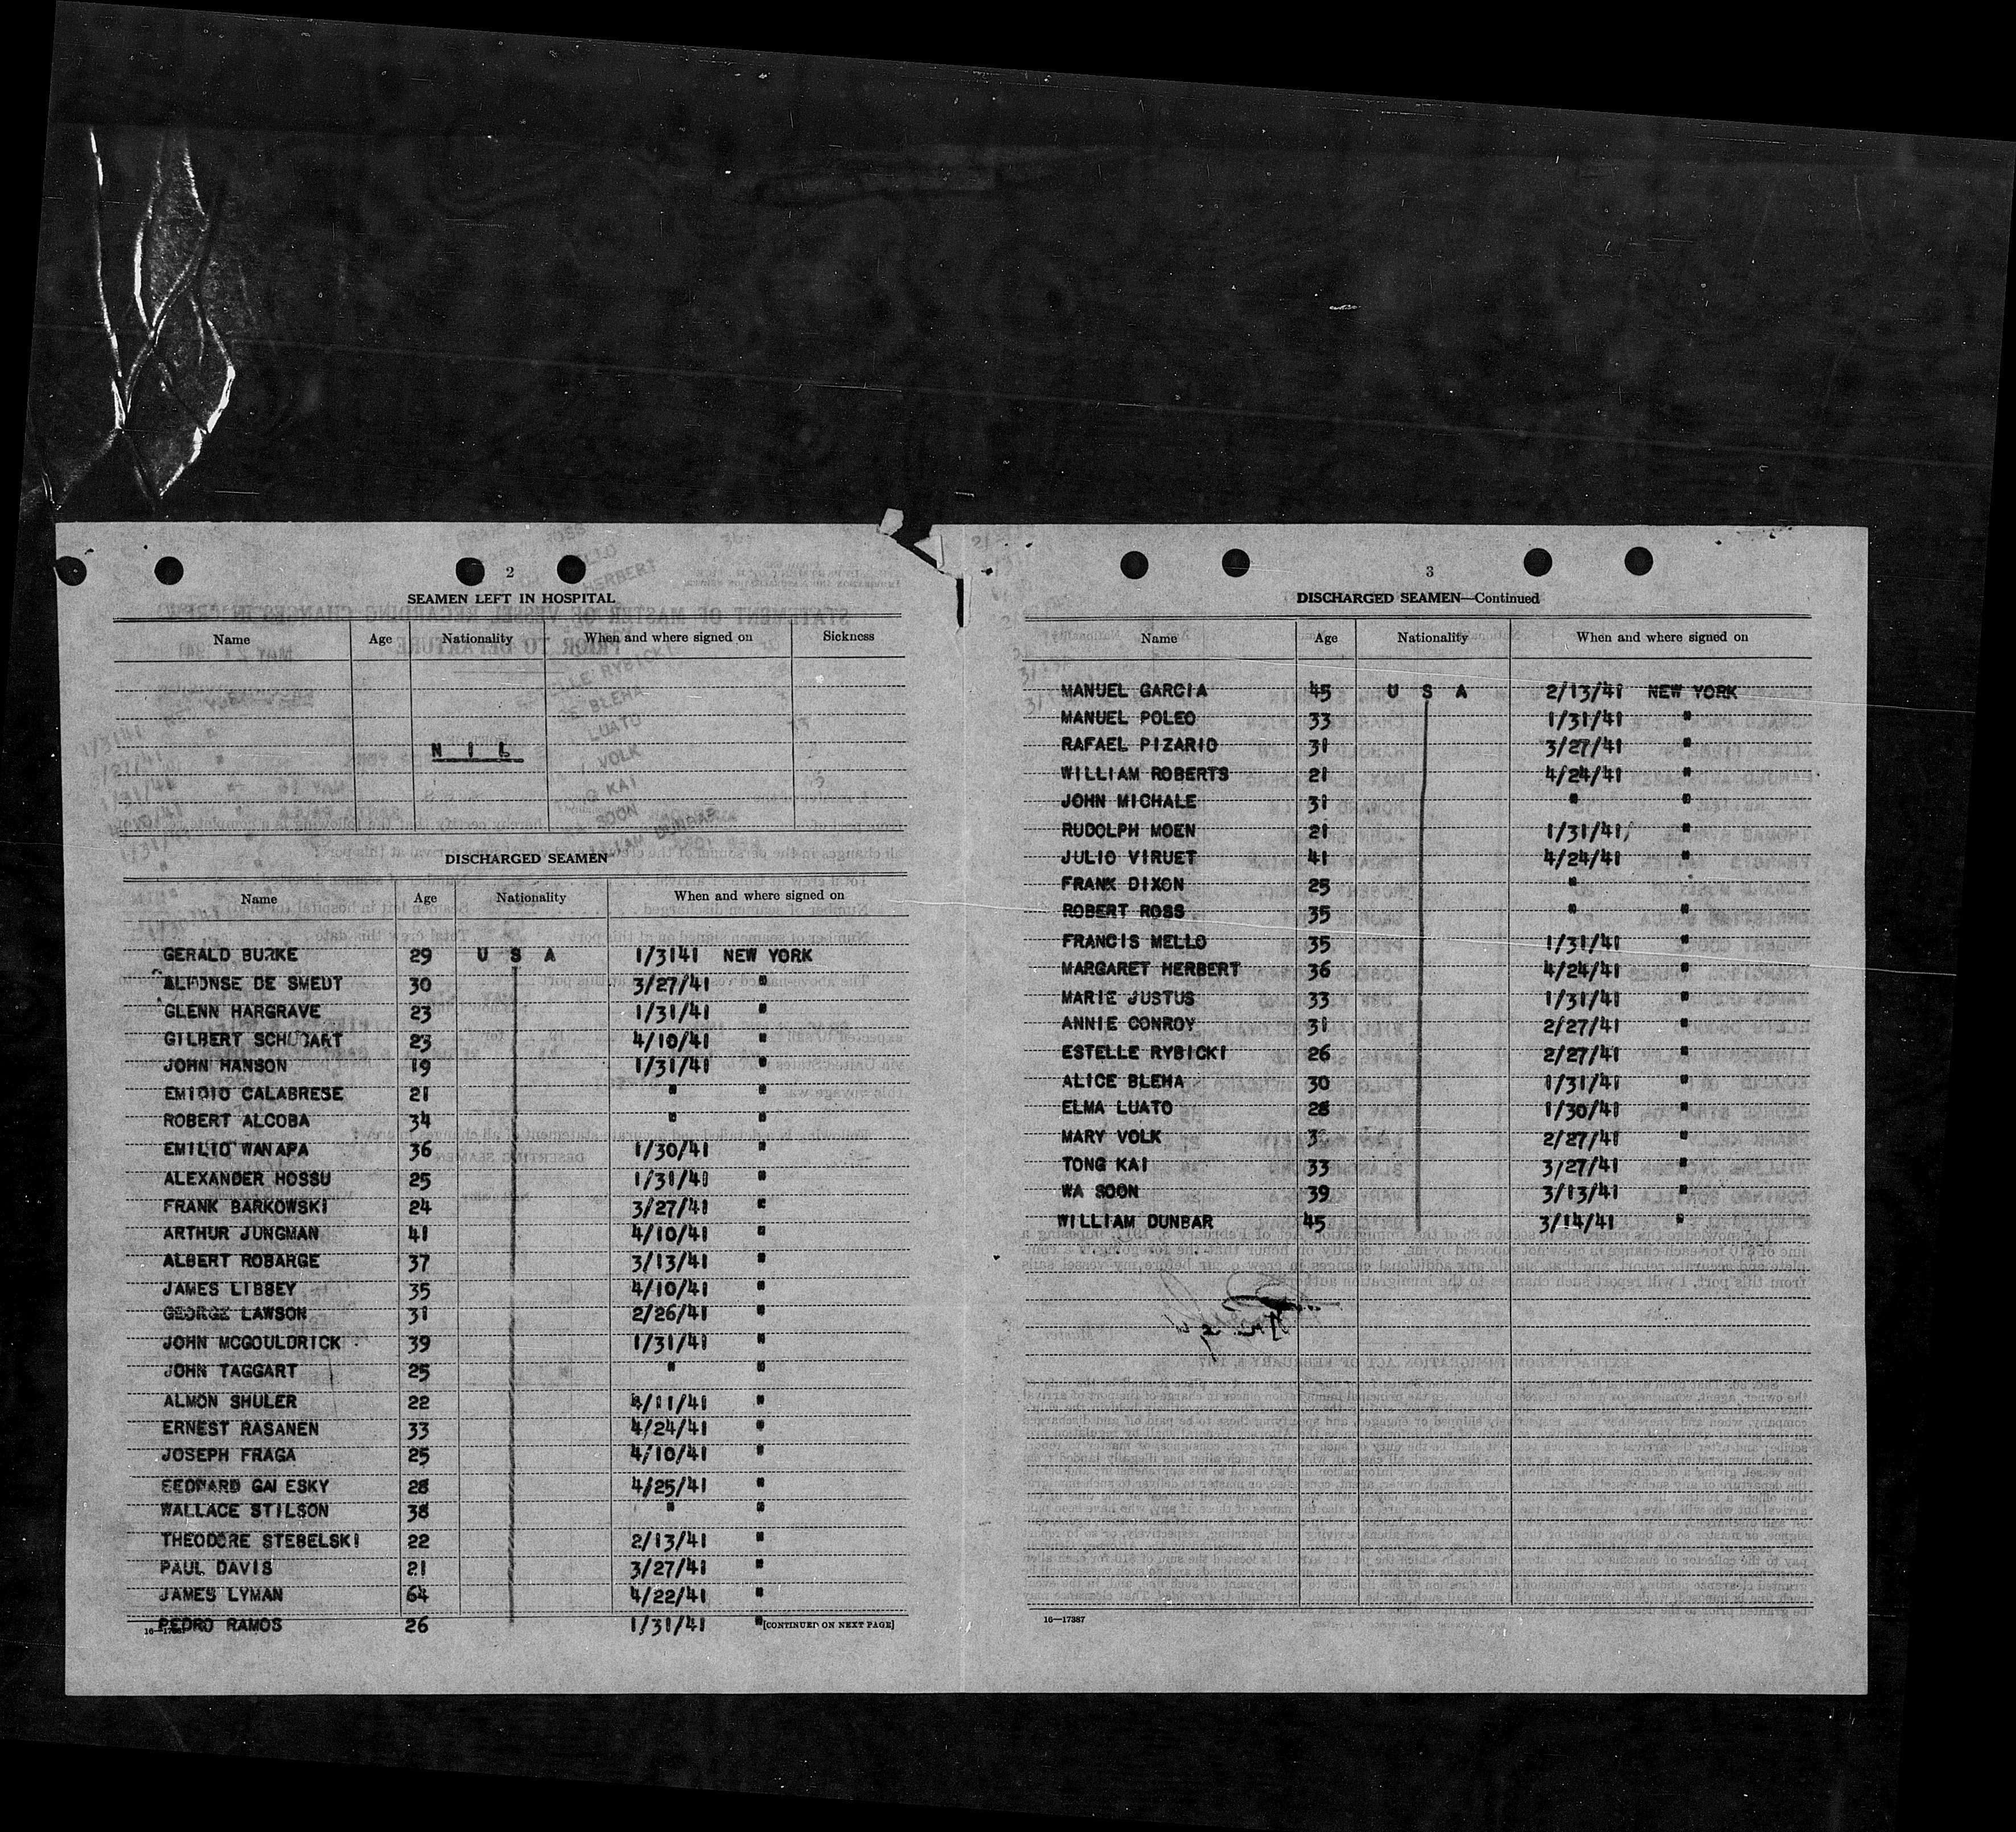 2
SEAMEN LEFT IN HOSPITAL
Name Age Nationality When and where signed on Sickness
N I L
DISCHARGED SEAMEN
Name Age Nationality When and where signed on
GERALD BURKE 29 U S A 1/3141 NEW YORK
ALFONSE DE SMEDT 30 3/27/41 "
GLENN HARGRAVE 23 1/31/41 "
GILBERT 23 4/10/41 "
JOHN HANSON 19 1/31/41 "
EMIDIO CALABRESE 21 " "
ROBERT ALCOBA 34 " "
EMILIO WANAPA 36 1/30/41 "
ALEXANDER HOSSU 25 1/31/41 "
FRANK BARKOWSKI 24 3/27/41 "
ARTHUR JUNGMAN 41 4/10/41 "
ALBERT ROBARGE 37 3/13/41 "
JAMES LIBBEY 35 4/10/41 "
GEORGE LAWSON 31 2/26/41 "
JOHN MCGOULDRICK 39 1/31/41 "
JOHN TAGGART 25 " "
ALMON SHULER 22 4/11/41 "
ERNEST RASANEN 33 4/24/41 "
JOSEPH FRAGA 25 4/10/41 "
28 4/25/41 "
WALLACE STILSON 38 " "
THEODORE STEBELSKI 22 2/13/41 "
PAUL DAVIS 21 3/27/41 "
JAMES LYMAN 64 4/22/41 "
PEDRO RAMOS 26 1/31/41 " [CONTINUED ON NEXT PAGE]
3
DISCHARGED SEAMEN—Continued
Name Age Nationality When and where signed on
MANUEL GARCIA 45 U S A 2/13/41 NEW YORK
MANUEL POLEO 33 1/31/41 "
RAFAEL PIZARIO 31 3/27/41 "
WILLIAM ROBERTS 21 4/24/41 "
JOHN MICHALE 31 " "
RUDOLPH MOEN 21 1/31/41 "
JULIO VIRUET 41 4/24/41 "
FRANK DIXON 25 " "
ROBERT ROSS 35 " "
FRANCIS MELLO 35 1/31/41 "
MARGARET HERBERT 36 4/24/41 "
MARIE JUSTUS 33 1/31/41 "
ANNIE CONROY 31 2/27/41 "
ESTELLE RYBICKI 26 2/27/41 "
ALICE BLEHA 30 1/31/41 "
ELMA LUATO 28 1/30/41 "
MARY VOLK 2/27/41 "
TONG KAI 33 3/27/41 "
WA SOON 39 3/13/41 "
WILLIAM DUNBAR 45 3/14/41 "
16—17387